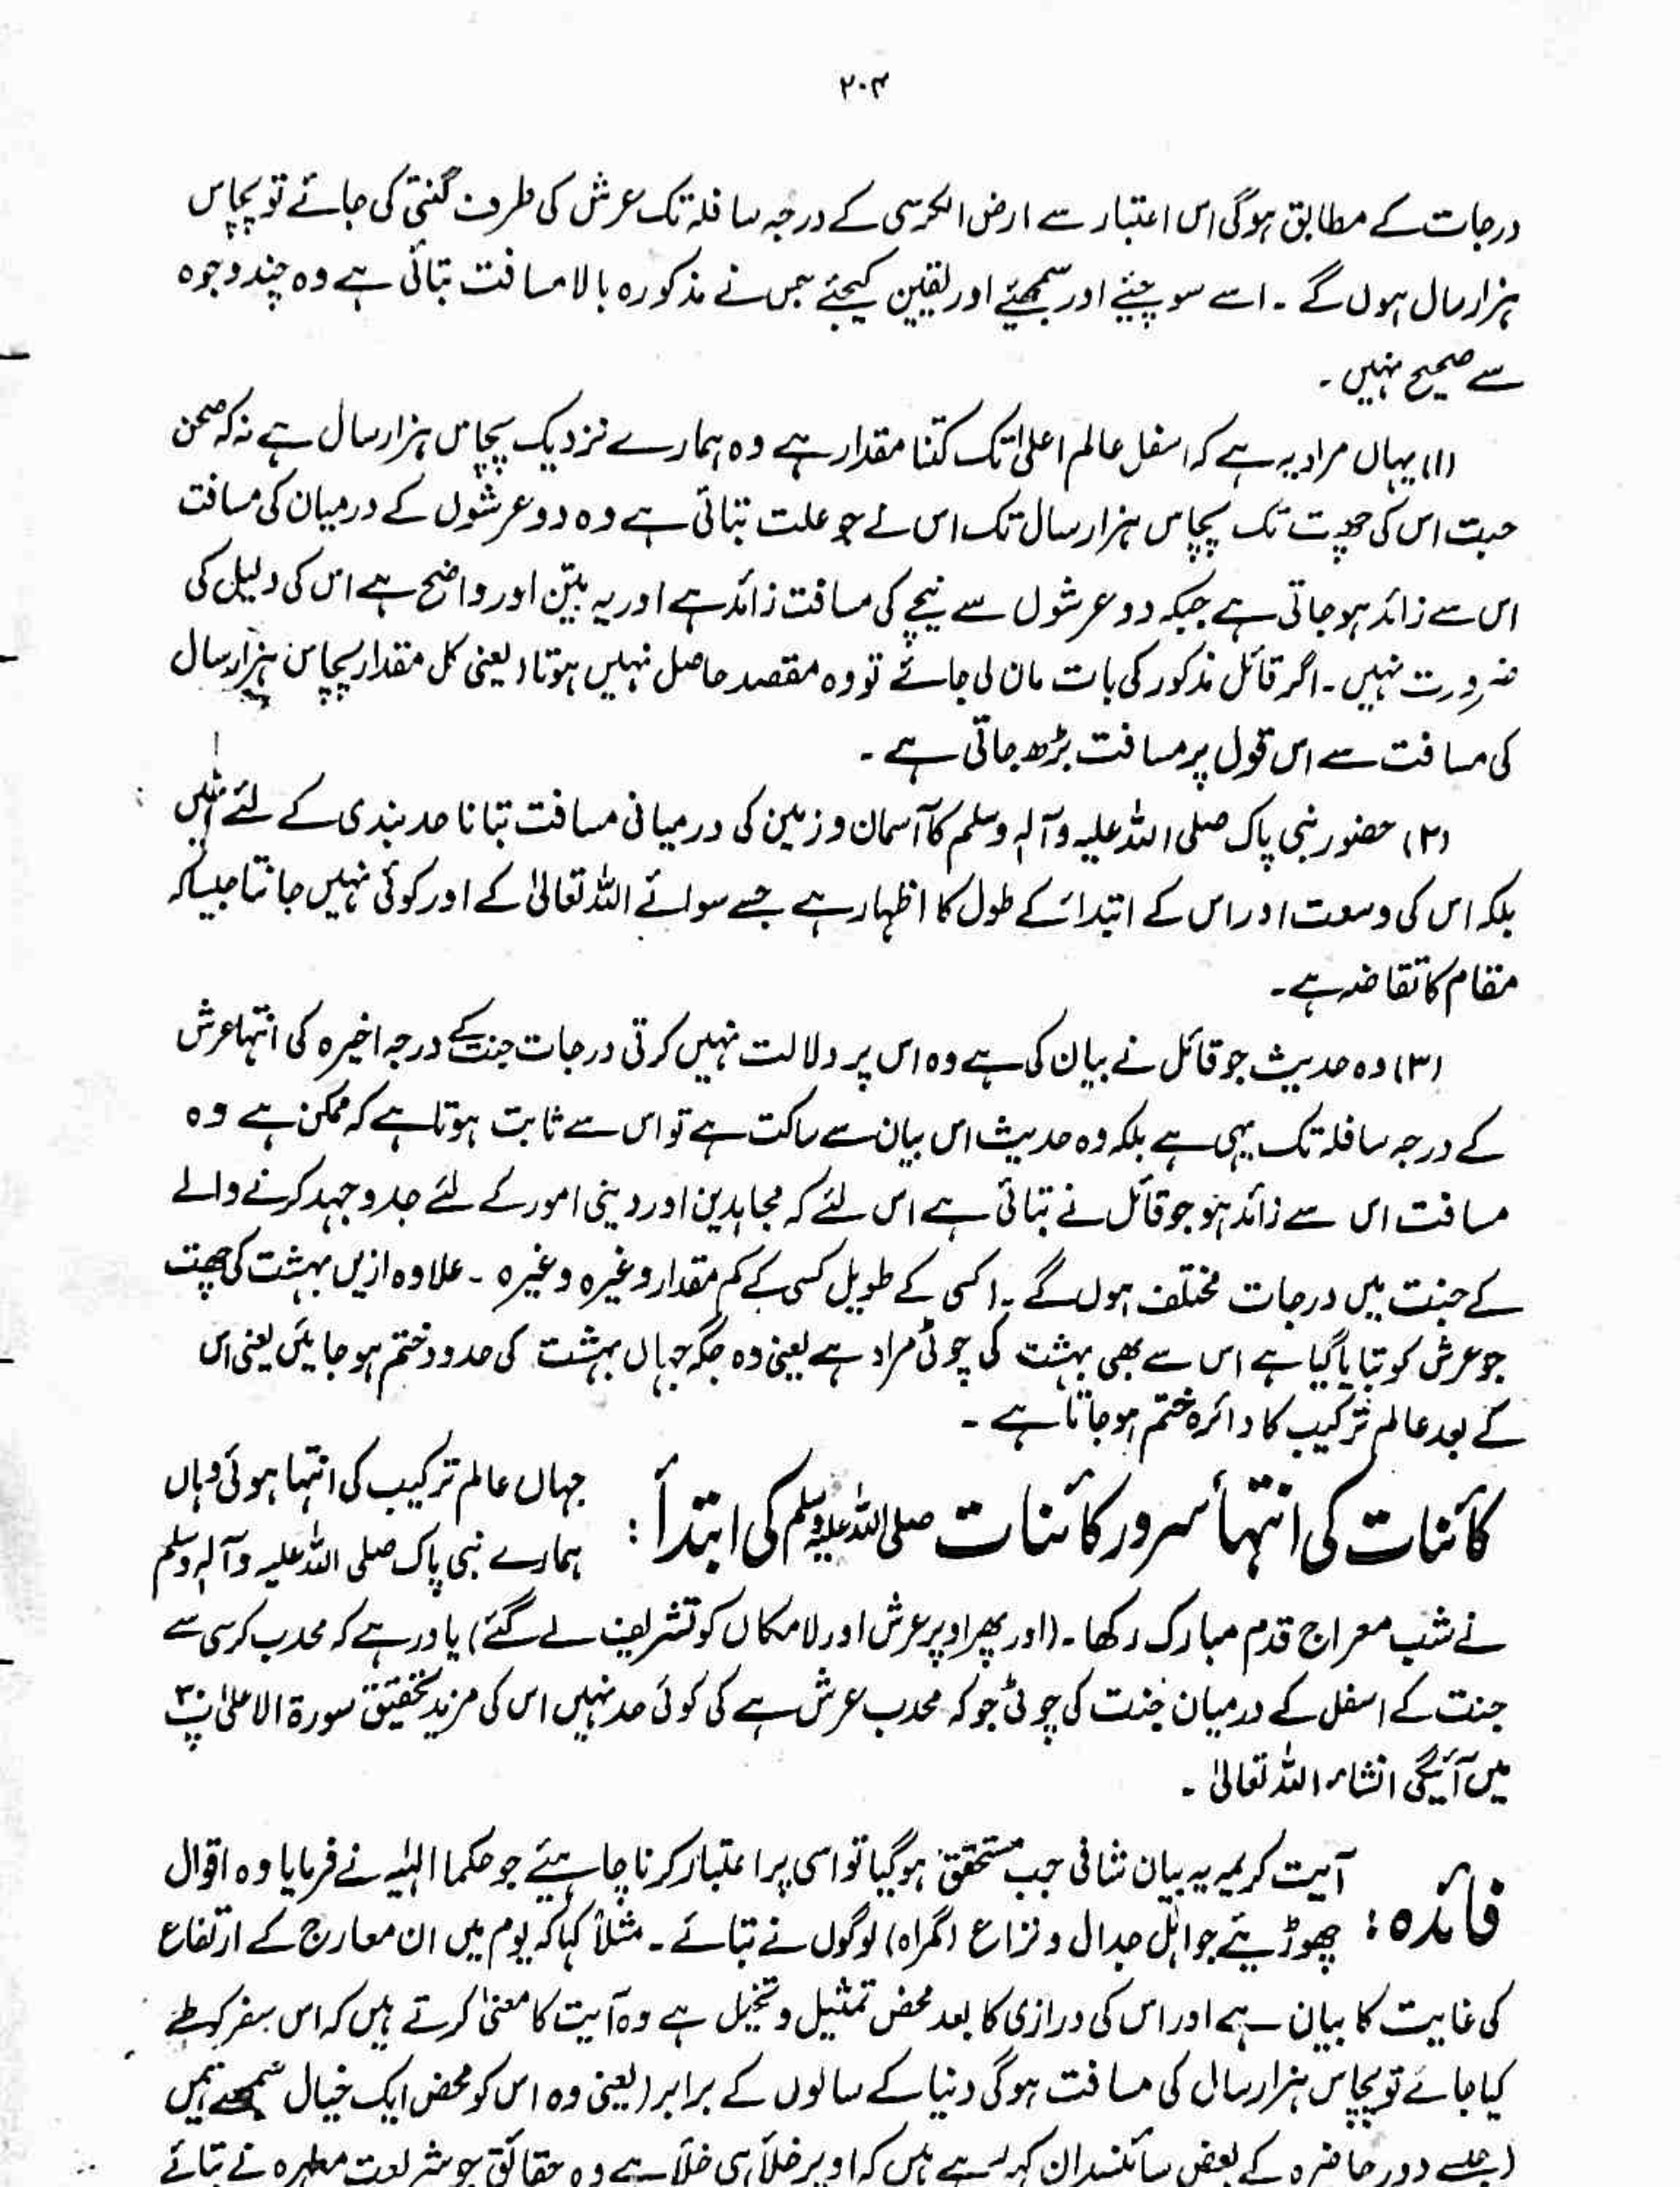 ۲۰۴
درجات کے مطابق ہوگی اس اعتبار سے ارض الکرسی کے درجہ سافلہ تک عرش کی طرف گنتی کی جائے تو پچاس
ہزار سال ہوں گے ۔ اسے سوچئے اور سمجھئے اور یقین کیجئے جس نے مذکورہ بالا مسافت بتائی ہے وہ چند وجوہ
سے صحیح نہیں ۔
(۱) یہاں مراد یہ ہے کہ اسفل عالم اعلیٰ تک کتنا مقدار ہے وہ ہمارے نزدیک پچاس ہزار سال ہے نہ کہ صحن
جنت اس کی چھت تک پچاس ہزار سال تک اس نے جو علت بتائی ہے وہ دو عرشوں کے درمیان کی مسافت
اس سے زائد ہو جاتی ہے جبکہ دو عرشوں سے نیچے کی مسافت زائد ہے اور یہ بیّن اور واضح ہے اس کی دلیل کی
ضرورت نہیں ۔ اگر قائل مذکور کی بات مان لی جائے تو وہ مقصد حاصل نہیں ہوتا (یعنی کل مقدار پچاس ہزار سال
کی مسافت سے اس قول پر مسافت بڑھ جاتی ہے ۔
(۲) حضور نبی پاک صلی اللہ علیہ وآلہ وسلم کا آسمان و زمین کی درمیانی مسافت بتانا حد بندی کے لئے نہیں
بلکہ اس کی وسعت اور اس کے ابتداء کے طول کا اظہار ہے جسے سوائے اللہ تعالیٰ کے اور کوئی نہیں جانتا جیسا کہ
مقام کا تقاضہ ہے ۔
(۳) وہ حدیث جو قائل نے بیان کی ہے وہ اس پر دلالت نہیں کرتی درجات جنت کے درجہ اخیرہ کی انتہا عرش
کے درجہ سافلہ تک یہی ہے بلکہ وہ حدیث اس بیان سے ساکت ہے تو اس سے ثابت ہوتا ہے کہ ممکن ہے وہ
مسافت اس سے زائد ہو جو قائل نے بتائی ہے اس لئے کہ مجاہدین اور دینی امور کے لئے جد و جہد کرنے والے
کے جنت میں درجات مختلف ہوں گے ۔ کسی کے طویل کسی کے کم مقدار وغیرہ وغیرہ ۔ علاوہ ازیں بہشت کی چھت
جو عرش کو بتایا گیا ہے اس سے بھی بہشت کی چوٹی مراد ہے یعنی وہ جگہ جہاں بہشت کی حدود ختم ہو جائیں یعنی اس
کے بعد عالم ترکیب کا دائرہ ختم ہو جاتا ہے ۔
کائنات کی انتہأ سرور کائنات صلی اللہ علیہ وسلم کی ابتدأ :
جہاں عالم ترکیب کی انتہا ہوئی وہاں
ہمارے نبی پاک صلی اللہ علیہ وآلہ وسلم
نے شب معراج قدم مبارک رکھا ۔ (اور پھر اوپر عرش اور لامکاں کو تشریف لے گئے) یاد رہے کہ محدب کرسی سے
جنت کے اسفل کے درمیان جنت کی چوٹی جو کہ محدب عرش ہے کی کوئی حد نہیں اس کی مزید تحقیق سورۃ الاعلیٰ پ۳۰
میں آئیگی انشاء اللہ تعالیٰ ۔
فائدہ : آیت کریمہ یہ بیان شافی جب متحقق ہوگیا تو اسی پر اعتبار کرنا چاہیئے جو حکما الہٰیہ نے فرمایا وہ اقوال
چھوڑیئے جو اہل جدال و نزاع (گمراہ) لوگوں نے بتائے ۔ مثلاً کہا کہ یوم میں ان معارج کے ارتفاع
کی غایت کا بیان ہے اور اس کی درازی کا بعد محض تمثیل و تخیل ہے وہ آیت کا معنیٰ کرتے ہیں کہ اس سفر کو طے
کیا جائے تو پچاس ہزار سال کی مسافت ہوگی دنیا کے سالوں کے برابر (یعنی وہ اس کو محض ایک خیال سمجھتے ہیں
(جیسے دور حاضرہ کے بعض سائنسدان کہہ رہے ہیں کہ اوپر خلأ ہی خلأ ہے وہ حقائق جو شریعت مطہرہ نے بتائے